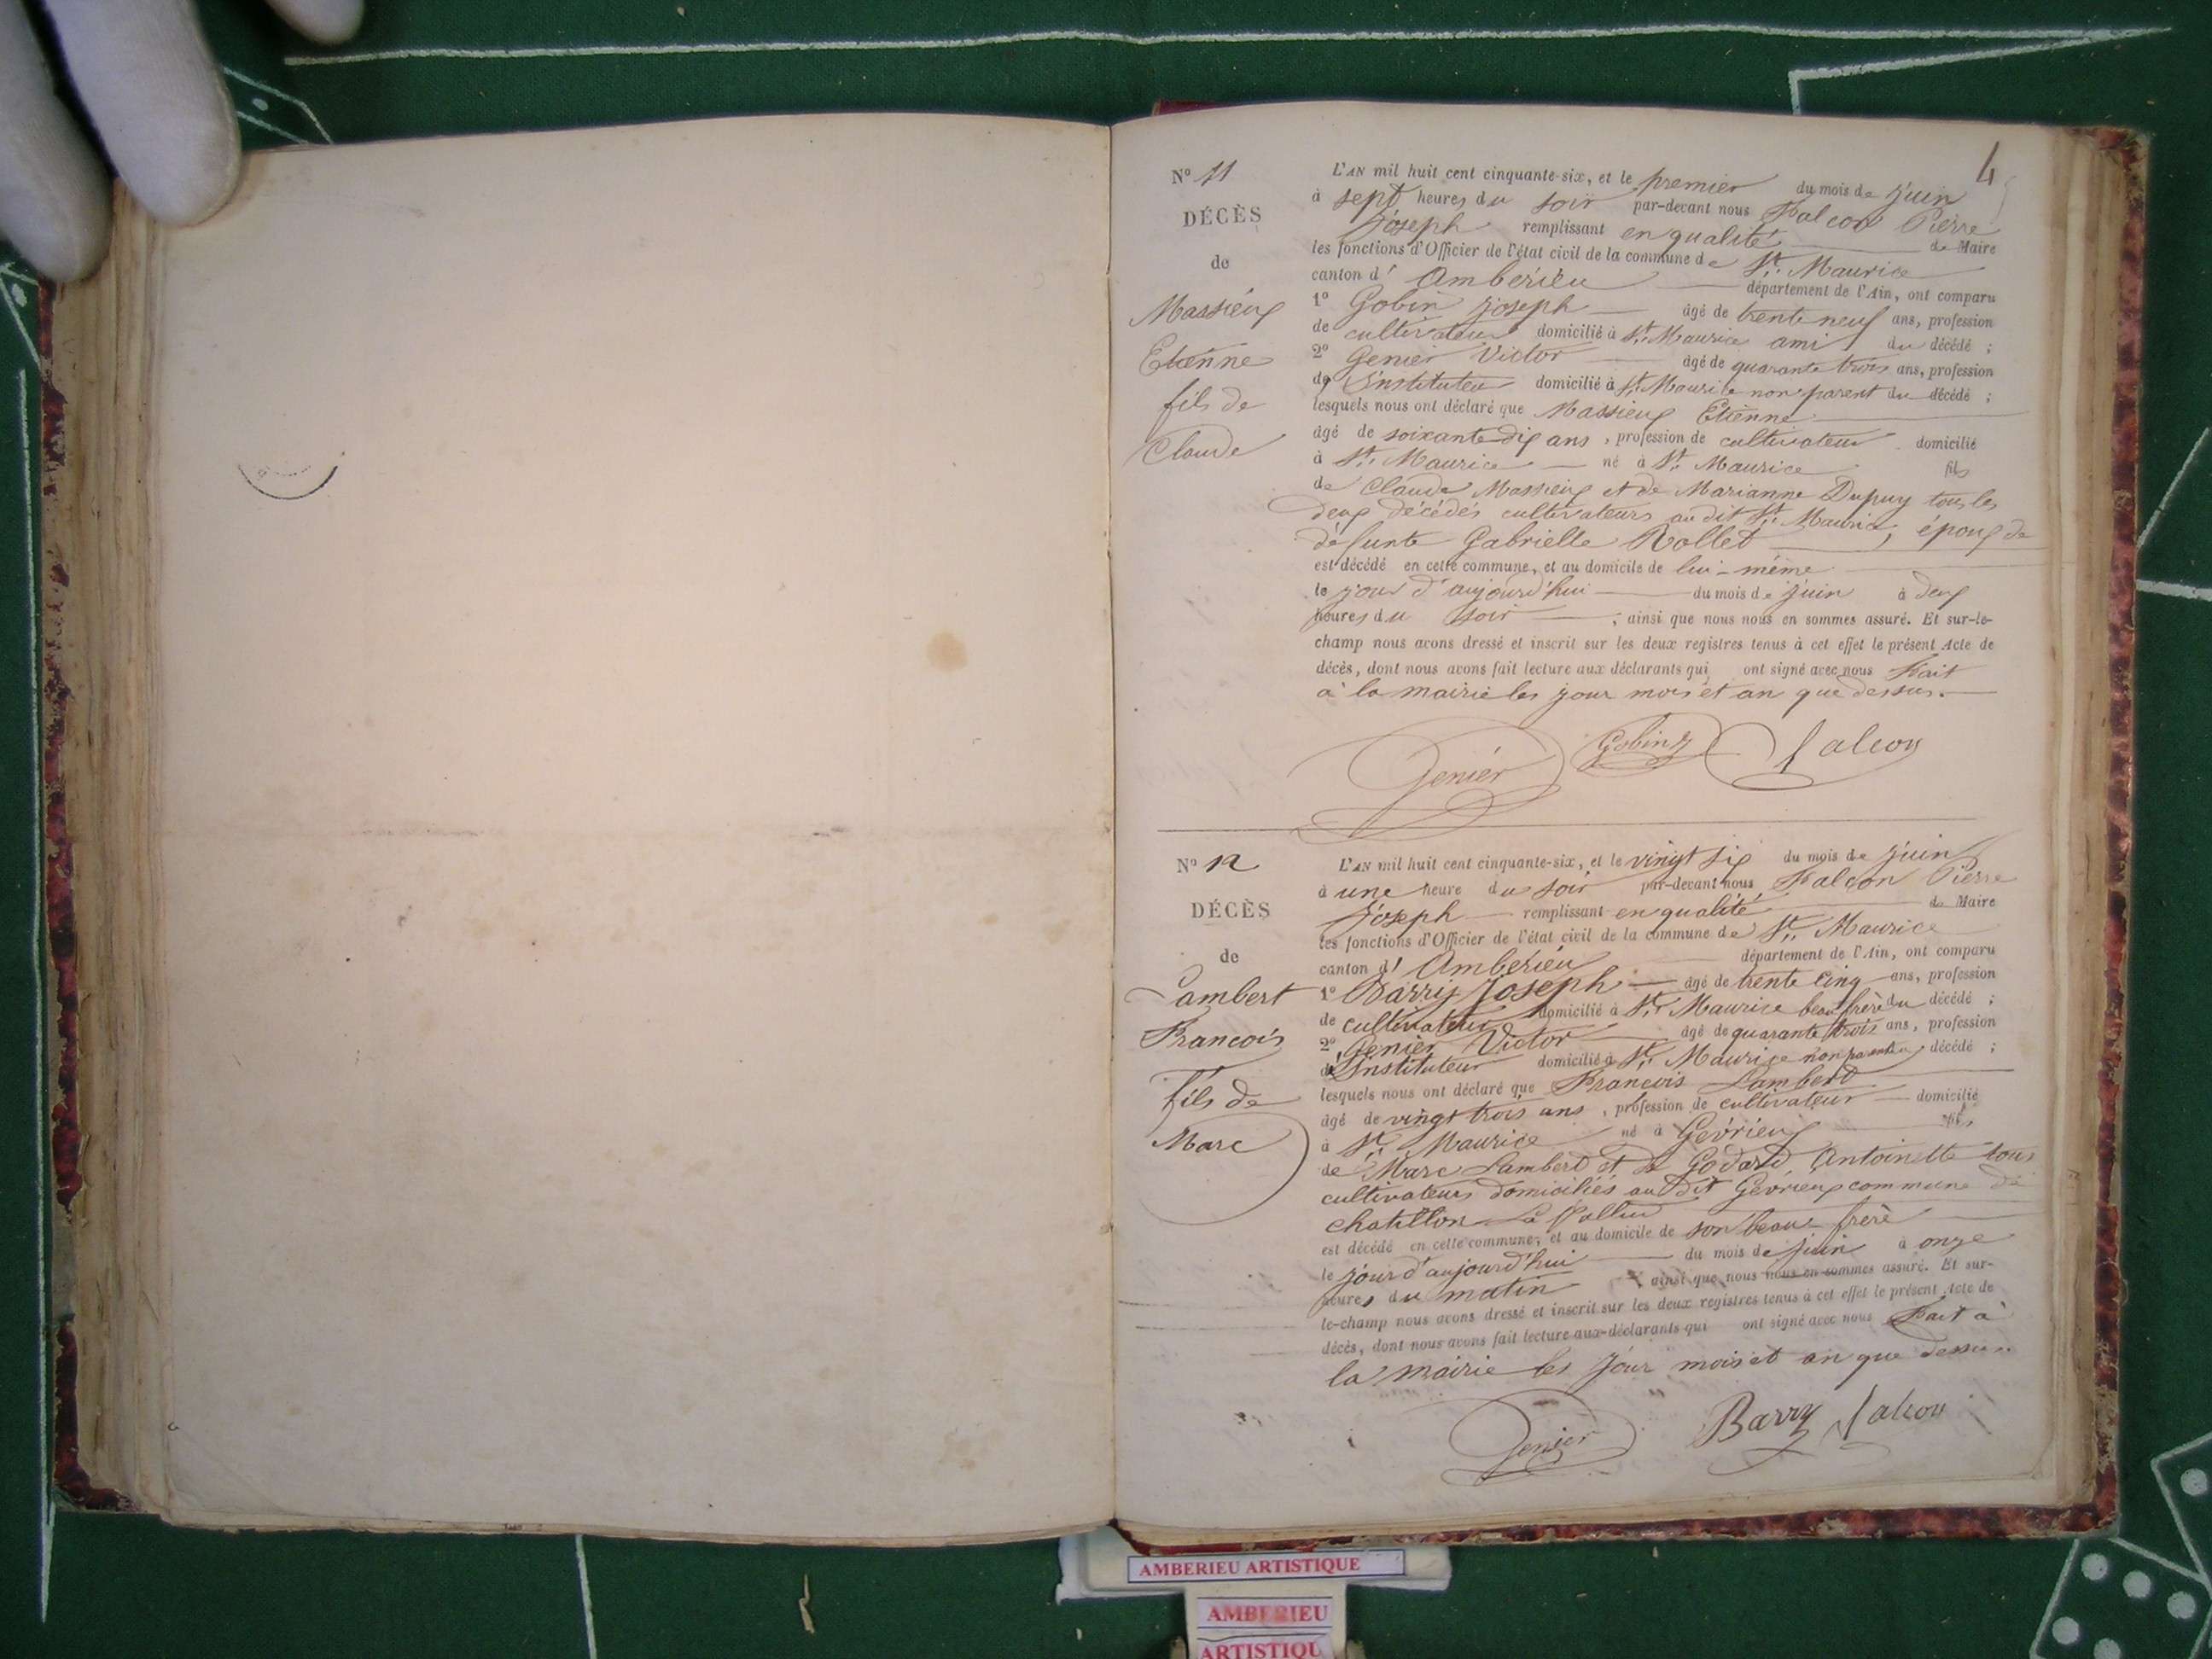 4
Nº 11
DÉCÈS
de
Massieux
Etienne
fils de
Claude
L'AN mil huit cent cinquante-six, et le premier du mois de juin
à sept heures du soir par-devant nous Falcon Pierre
Joseph remplissant en qualité de Maire
les fonctions d'Officier de l'état civil de la commune de St. Maurice
canton d' Ambérieu département de l'Ain, ont comparu
1º Gobin Joseph âgé de trente neuf ans, profession
de cultivateur domicilié à St. Maurice ami du décédé ;
2º Genier Victor âgé de quarante trois ans, profession
d'Instituteur domicilié à St. Maurice non parent du décédé ;
lesquels nous ont déclaré que Massieux Etienne
âgé de soixante-dix ans, profession de cultivateur domicilié
à St. Maurice né à St. Maurice fils
de Claude Massieux et de Marianne Dupuy tous les
deux décédés cultivateurs au dit St. Maurice, époux de
défunte Gabrielle Rollet
est décédé en cette commune, et au domicile de lui-même
le jour d'aujourd'hui du mois de juin à deux
heures du soir ; ainsi que nous nous en sommes assuré. Et sur-le-
champ nous avons dressé et inscrit sur les deux registres tenus à cet effet le présent Acte de
décès, dont nous avons fait lecture aux déclarants qui ont signé avec nous Fait
à la mairie les jour mois et an que dessus.
Genier Gobin Falcon
Nº 12
DÉCÈS
de
Lambert
Francois
fils de
Marc
L'AN mil huit cent cinquante-six, et le vingt six du mois de juin
à une heure du soir par-devant nous Falcon Pierre
Joseph remplissant en qualité de Maire
les fonctions d'Officier de l'état civil de la commune de St. Maurice
canton d' Ambérieu département de l'Ain, ont comparu
1º Barry Joseph âgé de trente cinq ans, profession
de cultivateur domicilié à St. Maurice beau frère du décédé ;
2º Genier Victor âgé de quarante trois ans, profession
d'Instituteur domicilié à St. Maurice non parent du décédé ;
lesquels nous ont déclaré que Francois Lambert
âgé de vingt trois ans, profession de cultivateur domicilié
à St. Maurice né à Gévrieux fils
de Marc Lambert et de Godard Antoinette tous
cultivateurs domiciliés au dit Gévrieux commune de
chatillon La Pallud
est décédé en cette commune, et au domicile de son beau-frère
le jour d'aujourd'hui du mois de juin à onze
heures du matin ainsi que nous nous en sommes assuré. Et sur-
le-champ nous avons dressé et inscrit sur les deux registres tenus à cet effet le présent Acte de
décès, dont nous avons fait lecture aux déclarants qui ont signé avec nous Fait à
la mairie les jour mois et an que dessus.
Genier Barry Falcon
AMBERIEU ARTISTIQUE
AMBERIEU
ARTISTIQU